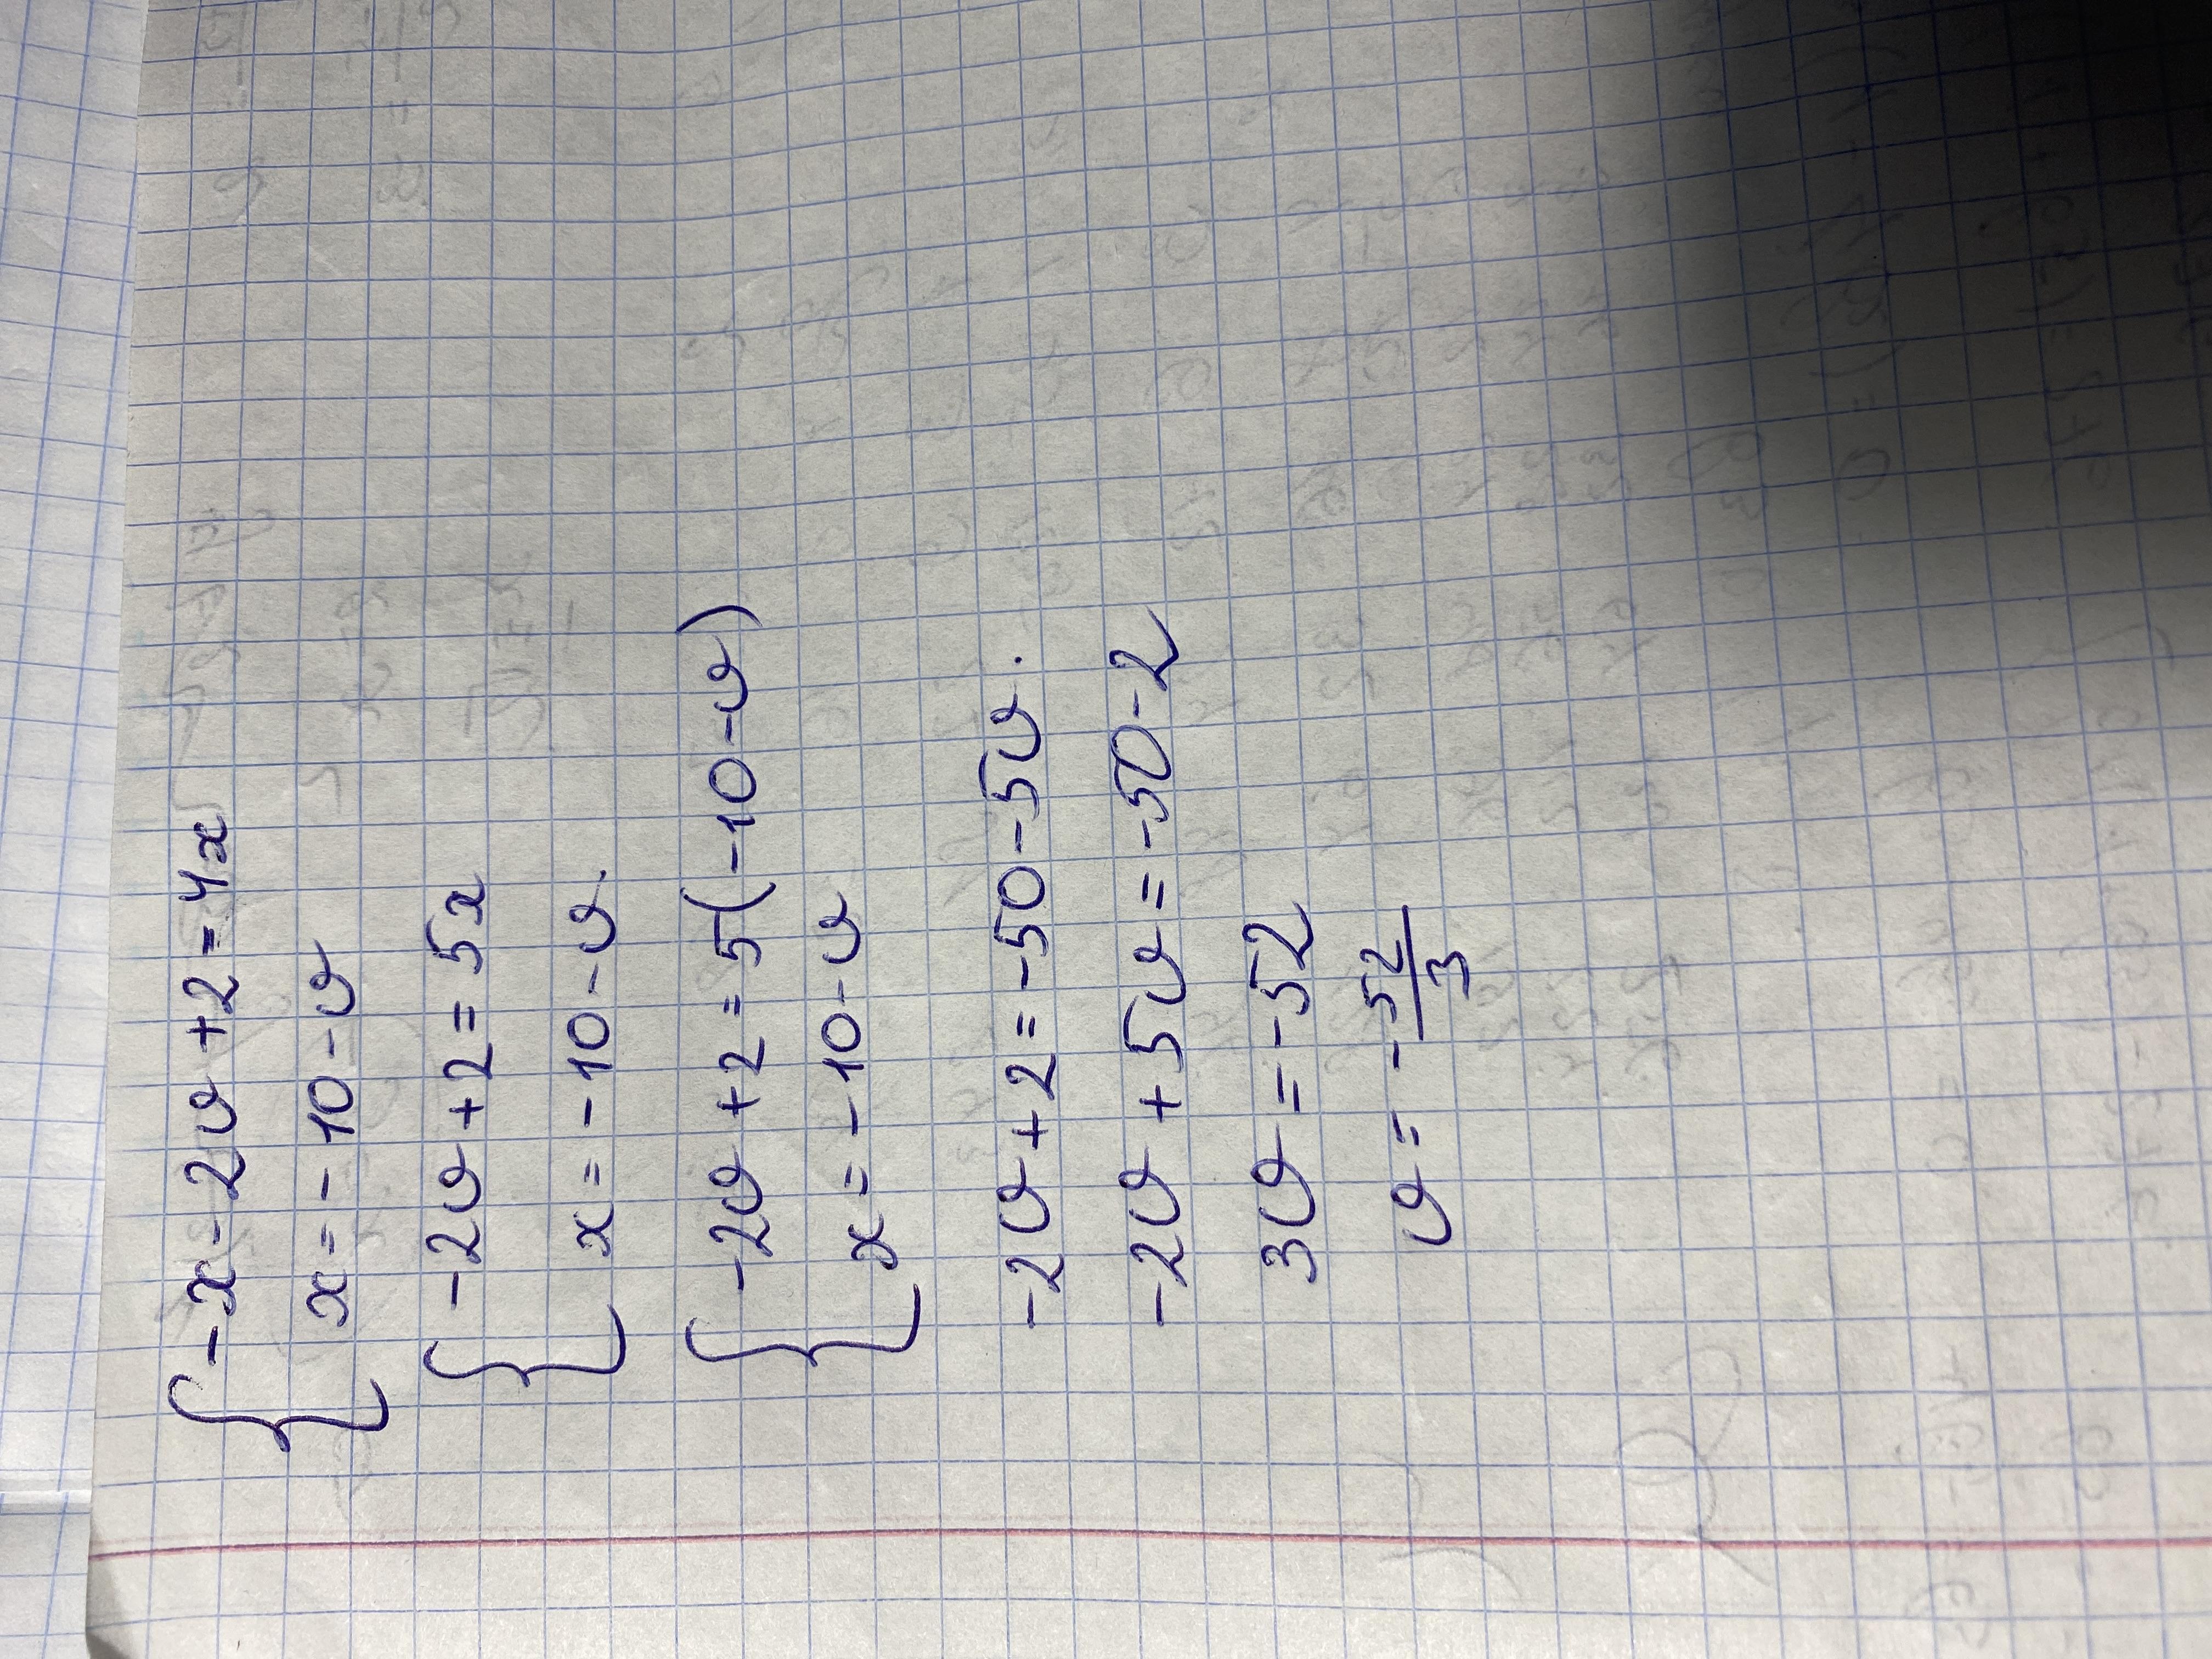 { -x - 2y + 2 = 4x
x = -10 - y
{ -2y + 2 = 5x
x = -10 - y.
{ -2y + 2 = 5(-10 - y)
x = -10 - y
-2y + 2 = -50 - 5y.
-2y + 5y = -50 - 2
3y = -52
y = -52/3